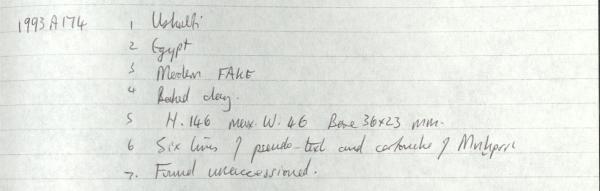 1993 A 174 1 Ushabti
2 Egypt
3 Modern FAKE
4 Baked clay.
5 H. 146 max. W. 46 Base 36x23 mm.
6 Six lines of pseudo-text and cartouche of
7. Found unaccessioned.